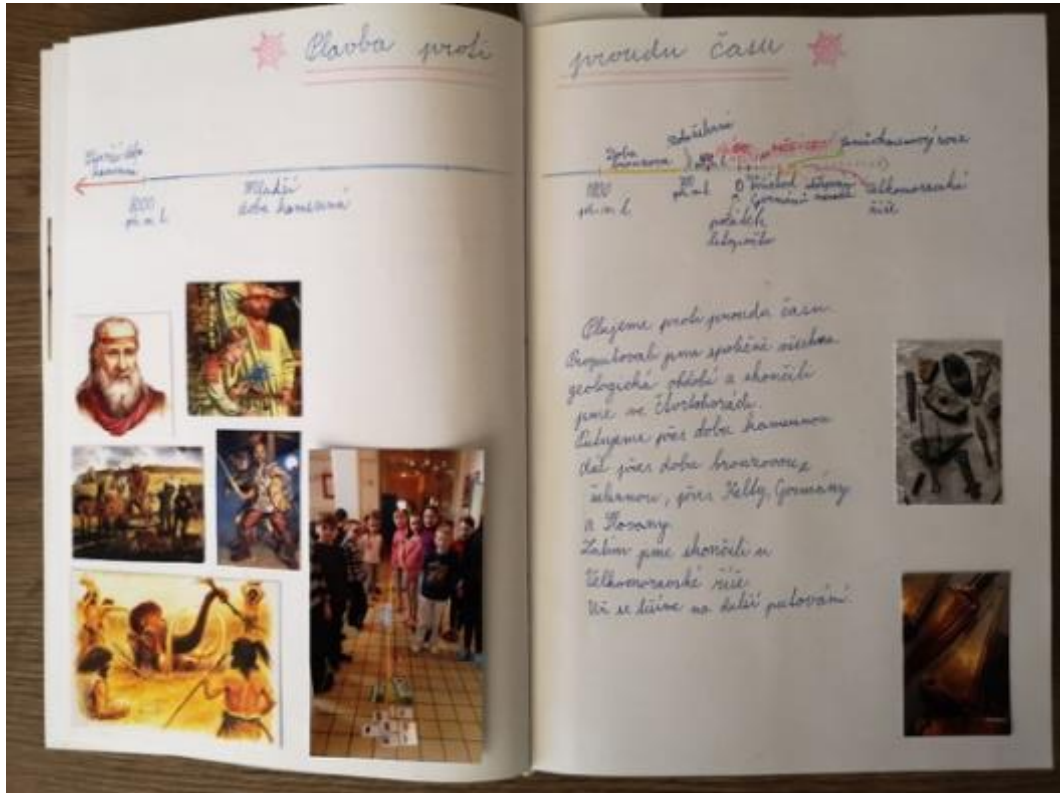 Plavba proti proudu času
Starší doba
kamenná
8000
př. n. l.
Mladší
doba kamenná
Doba
bronzová
př. n. l.
př. n. l.
0
počátek
letopočtu
Velkomoravská
říše
Plujeme proti proudu času.
Proputovali jsme společně všechna
geologická období a skončili
jsme ve čtvrtohorách.
Putujeme přes dobu kamennou
dál přes dobu bronzovou,
železnou, přes Kelty, Germány
a Slovany.
Zatím jsme skončili u
Velkomoravské říše.
Už se těšíme na další putování.